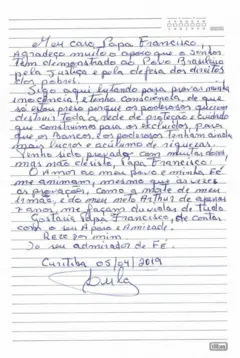 Meu caro Papa Francisco,
Agradeço muito o apoio que o Senhor
tem demonstrado ao Povo Brasileiro
pela Justiça e pela defesa dos direitos
dos pobres.
Sigo aqui lutando para provar minha
inocência, e tenho consciência, de que
só estou preso porque os poderosos querem
destruir toda a rede de proteção e cuidado
que construímos para os excluídos, para
que os bancos, os poderosos tenham ainda
mais lucros e acúmulo de riquezas.
Tenho sido provado com muitas dores,
mas não desisto, Papa Francisco!
O Amor ao meu povo e minha Fé
me animam, mesmo que às vezes
as provações, como a morte de meu
irmão, e do meu neto Arthur de apenas
7 anos, me façam duvidar de tudo.
Gostaria Papa Francisco, de contar
com o seu Apoio e Amizade.
Reze por mim.
Do seu admirador de Fé.
Curitiba 05/04/2019
Lula
tilibra